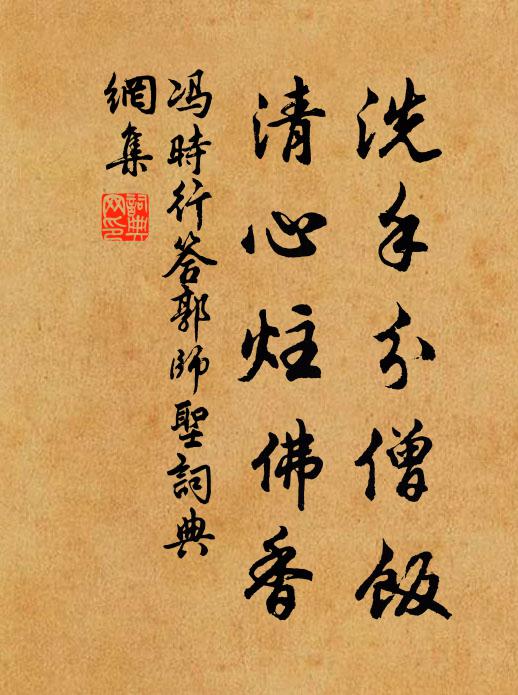 洗手分僧飯
清心炷佛香
冯時行答郭師聖詞典
網集
詞典
网印